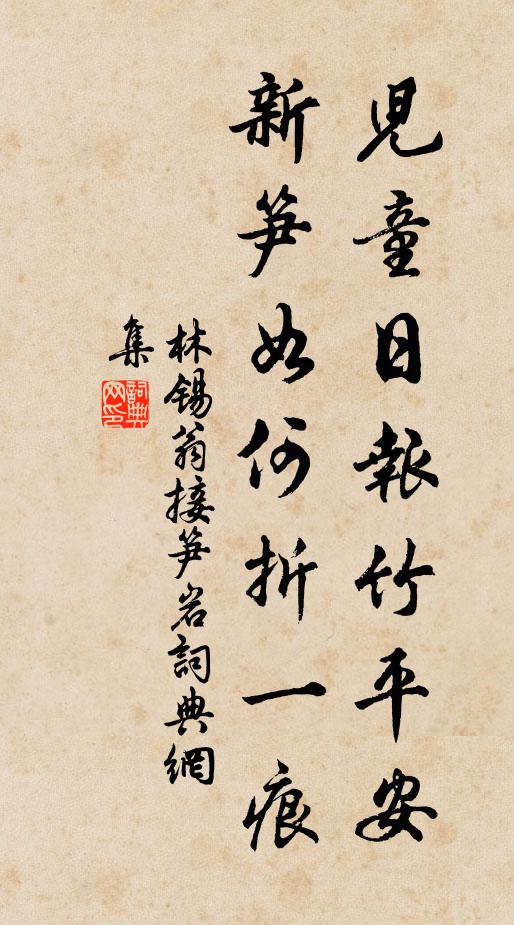 兒童日報竹平安
新笋如何折一痕
林锡翁接笋岩詞典網
集
詞典網印